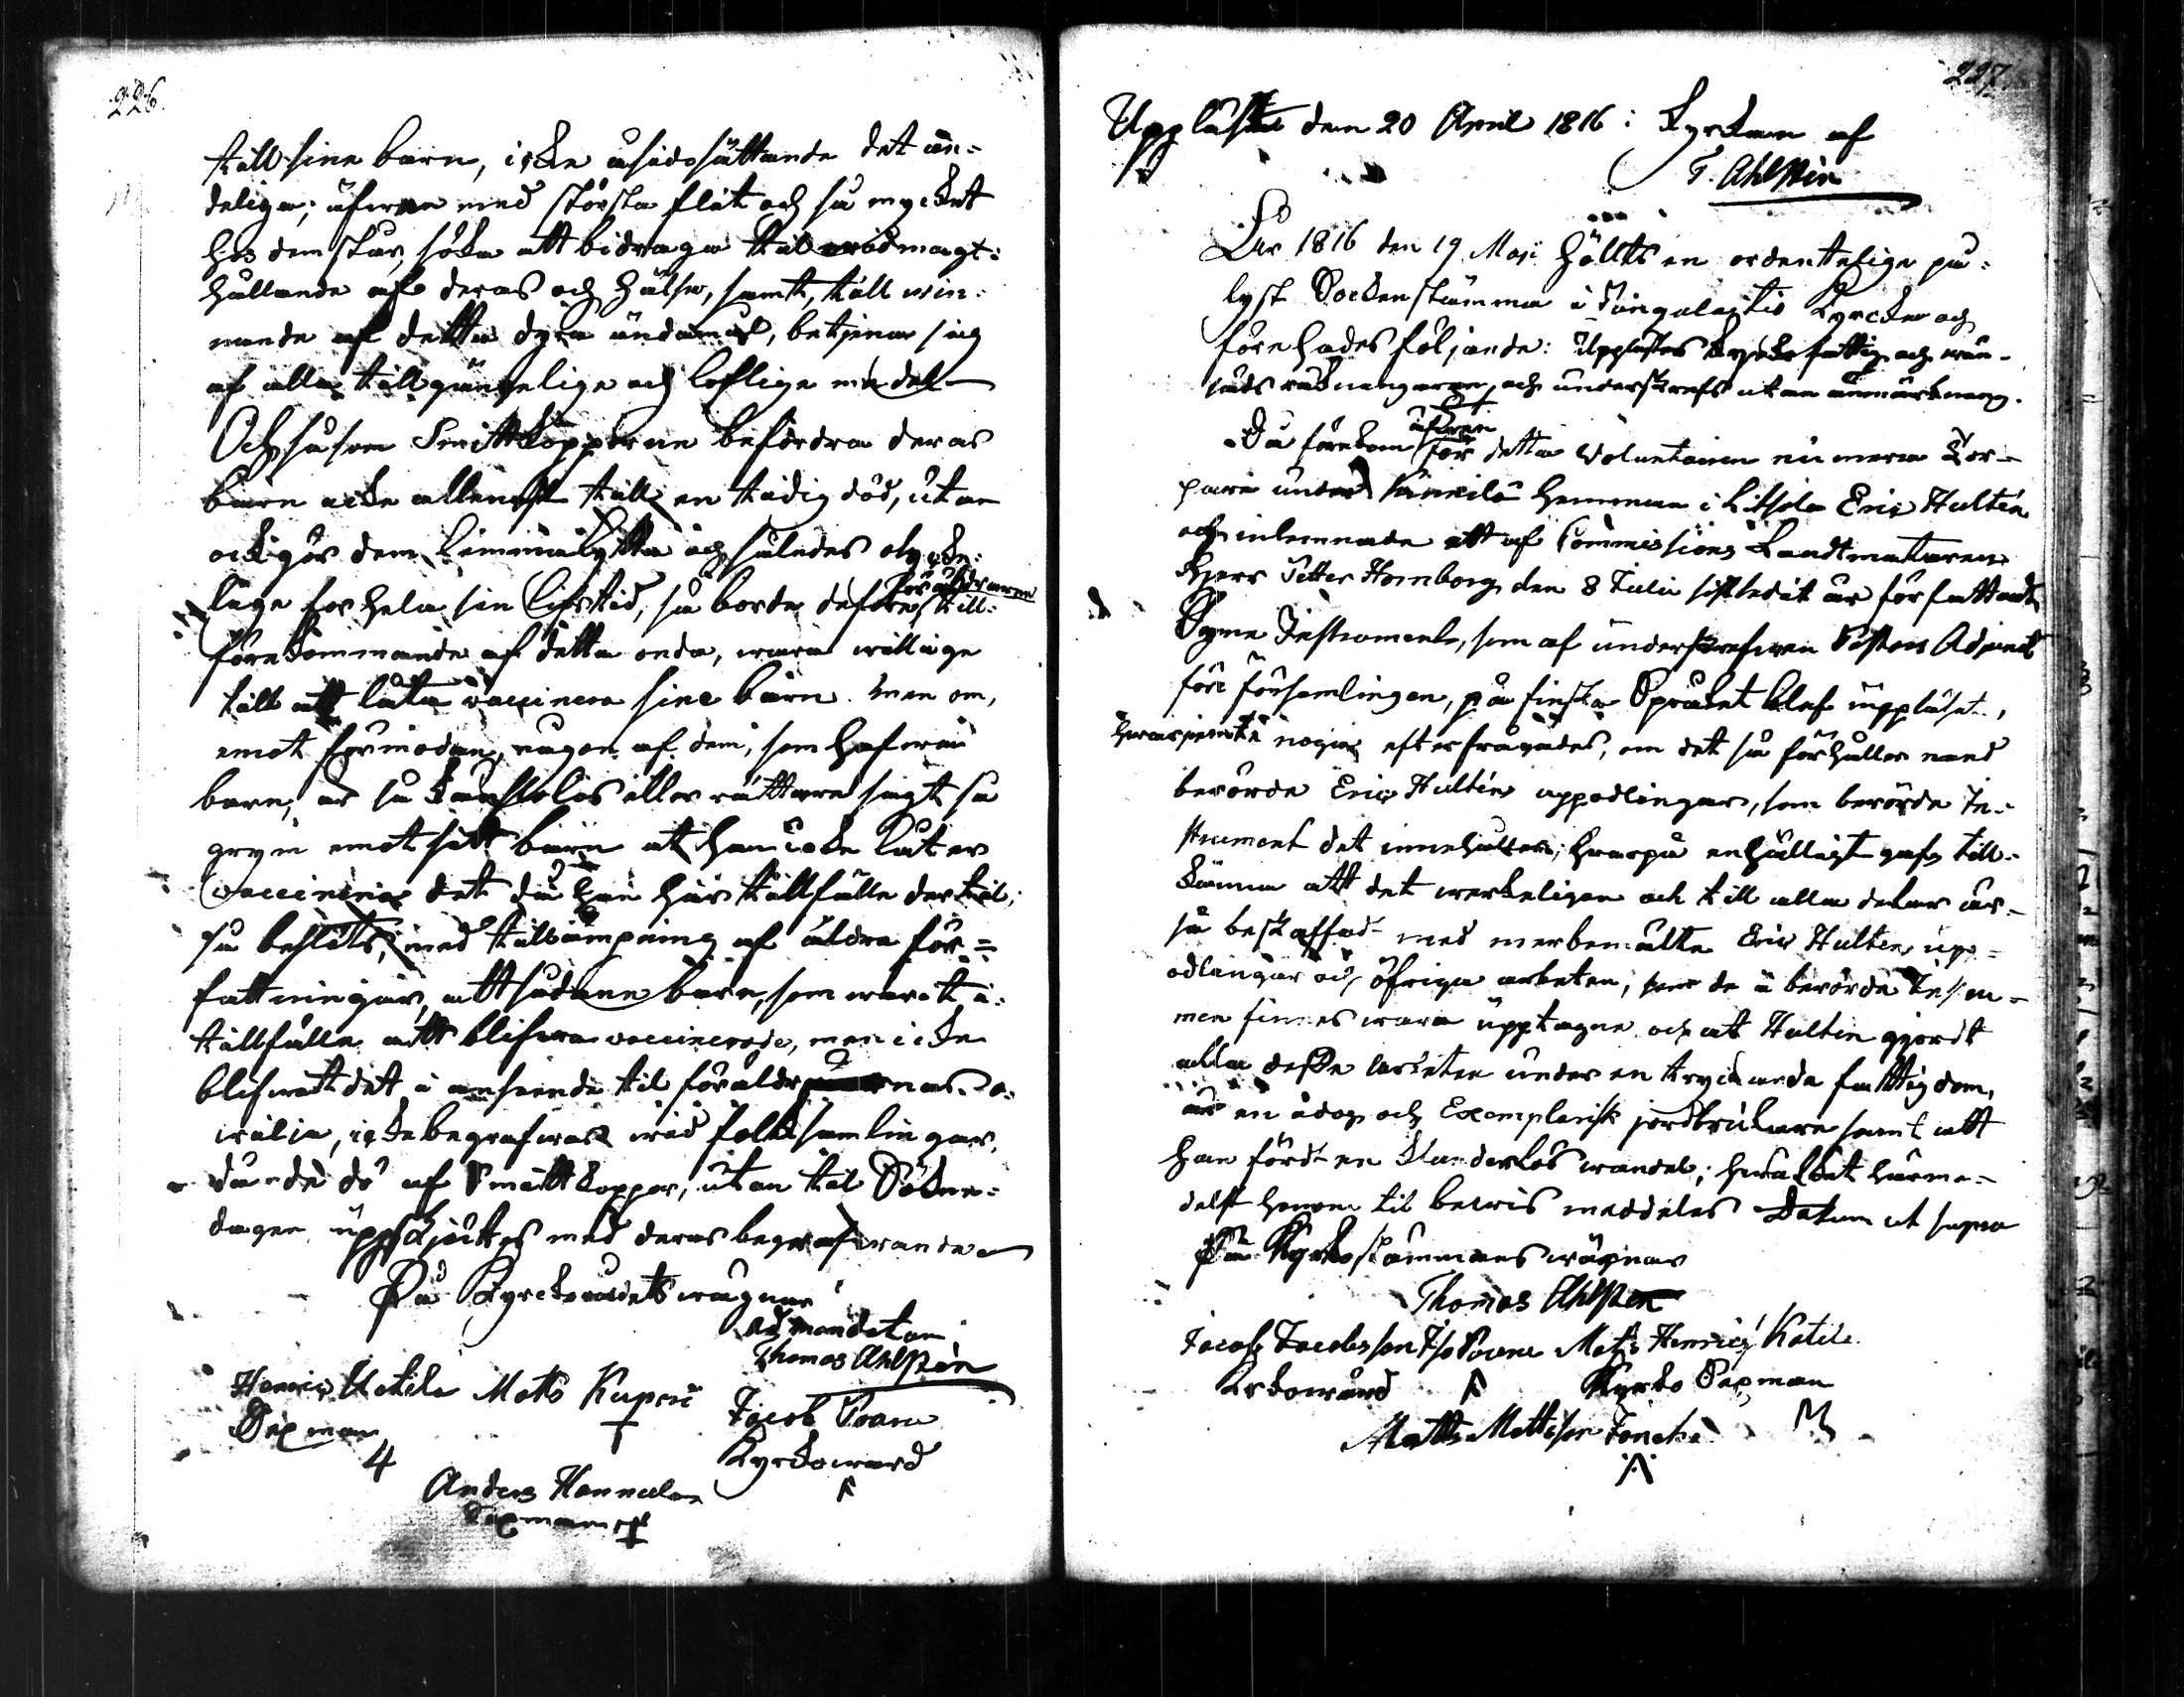 226.
till sine barn, icke åsidosättande det an-
deliga; äfwen med största flit och så mycket
hos dem står, söka att bidraga till widmagt-
hållande af deras och hälsa, samt, till win-
nande af detta dyra ändamål, betjena sig
af alla tillgängelige och loflige medel
Och såsom Smittkopporne befordra deras
barn icke allenast till en tidig död, utan
ock gör dem lemmalytta och således olycke-
lige for hela sin lifstid, så borde derföre föräldrarne till
förekommande af detta onda, wara willige
till att låta vaccinera sine barn. Men om,
emot förmodan, någon af dem, som hafwa
barn, är så känslolös eller rättare sagt så
grym emot sitt barn at han icke låter
vaccinera det då han har tillfälle dertil;
så beslöts, med tillämpning af äldre för-
fattningar, att sådane barn, som warit i
tillfälle att blifwa vaccinerade, men icke
blifwit det i anseende til föräldrarnas o-
wilja, icke begrafwas wid folksamlingar,
då de dö af Smittkoppor, utan til Sökne-
dagen uppskjutes med deras begrafwande
På Kyrckorådets wägnar
ad mandatum
Thomas Ahlsten
Henric Kotila Matts Kupari Jacob Poano
Sexman Kyrckoward
4
Anders Hannula
Sexman
227.
Uppläst den 20 April 1816 i Kyrckan af
T. Ahlsten
År 1816 den 19 Maji hölts en ordentelige på-
lyst Sockenstämma i Pungalaitio Kyrcka och
förehades följande: Upplästes Kyrcko fattig och
räkningarne, och underskrefs utan anmärkning.
Då förekom äfwen för detta Volontairen numera Tor-
pare under hemman i Litsola Eric Hultin
och inlemnade ett af Commissions Landtmätaren
Herr Petter Homborg den 8 Julii sistledit år författadt
Syne Instrument, som af underskrefwen Pastors Adjunct
före församlingen, på finska Språket blef uppläset,
hwarjemte noga efterfrågades, om det så förhåller med
berörde Eric Hultins uppodlingar, som berörde In-
strument det innehåller; hwarpå enhälligt gafs till-
känna att det werkeligen och till alla delar är
så beskaffad med merbemälte Eric Hultins upp-
odlingar och öfriga arbeten, som de i berörde Instru-
men finnes wara upptagne och att Hultin gjordt
alla desse arbeten under en tryckande fattigdom,
är en idog och Exemplarisk jordbrukare samt att
han fördt en klanderlös wandel; hwilket härme-
delst honom til bewis meddeles Datum ut supra
På Kyrkostämmans wägnar
Thomas Ahlsten
Jacob Jacobsson Poano Matts Henrics: Kotila
Kyrkowärd Kyrko Sexman
Matts Mattsson